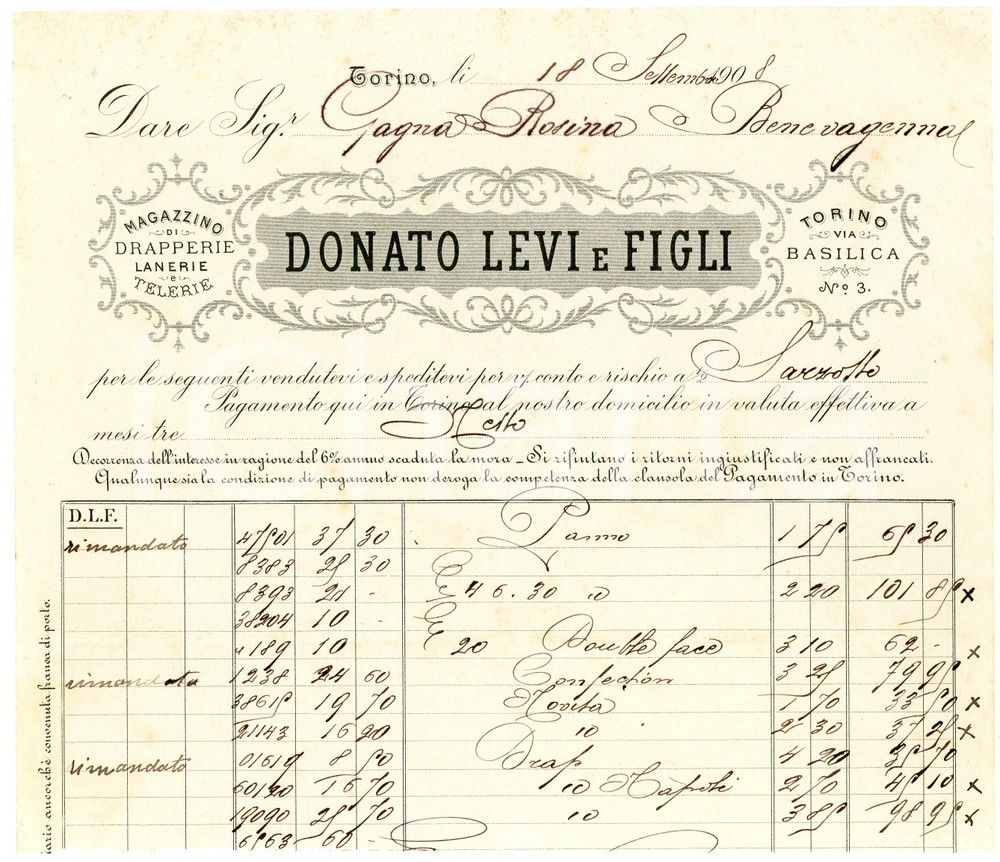 Torino, li 18 Settemb 1908
Dare Sig.r Gagna Rosina Benevagenna
MAGAZZINO
DI
DRAPPERIE
LANERIE
e
TELERIE
DONATO LEVI E FIGLI
TORINO
VIA
BASILICA
No 3.
per le seguenti vendutevi e speditevi per v/ conto e rischio a ½ Sarzotto
Pagamento qui in Torino al nostro domicilio in valuta effettiva a
mesi tre Netto
Decorrenza dell'interesse in ragione del 6% annuo scaduta la mora _ Si rifiutano i ritorni ingiustificati e non affrancati.
Qualunque sia la condizione di pagamento non deroga la competenza della clausola del Pagamento in Torino.
D.L.F.
rimandato 47501 37 30 Panno 1 75 65 30
8383 25 30
8393 21 - 46.30 " 2 20 101 85 x
38204 10
" 189 10 20 Double face 3 10 62 - x
rimandata 1238 24 60 Confection 3 25 79 95
38615 19 70 Novita 1 70 33 50 x
21143 16 20 " 2 30 37 25 x
rimandato 01619 8 50 Drap 4 20 35 70
60120 16 70 " Napoli 2 70 45 10 x
19090 25 70 " 3 85 98 95 x
6563 60 -
ancorchè convenuta franca di porto.